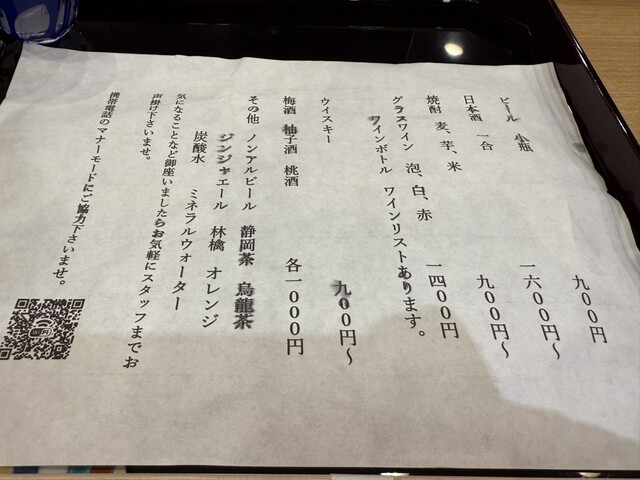 ビール 小瓶 九〇〇円
日本酒 一合 一六〇〇円～
焼酎 麦、芋、米 九〇〇円～
グラスワイン 泡、白、赤 一四〇〇円
ワインボトル ワインリストあります。
ウイスキー 九〇〇円～
梅酒 柚子酒 桃酒 各一〇〇〇円
その他 ノンアルビール 静岡茶 烏龍茶
ジンジャエール 林檎 オレンジ
炭酸水 ミネラルウォーター
気になることなど御座いましたらお気軽にスタッフまでお
声掛け下さいませ。
携帯電話のマナーモードにご協力下さいませ。